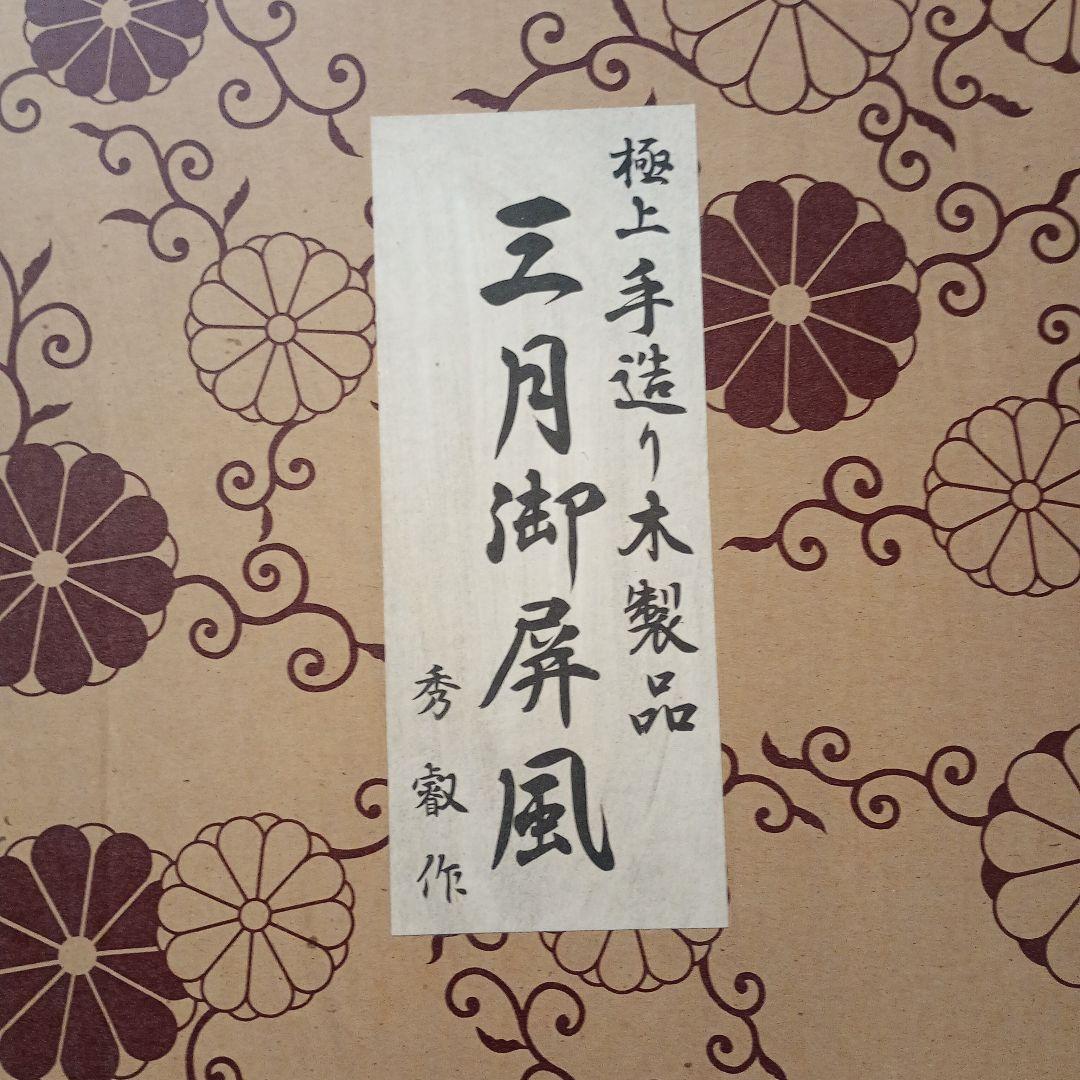 極上手造り木製品
三月御屏風
秀叡作